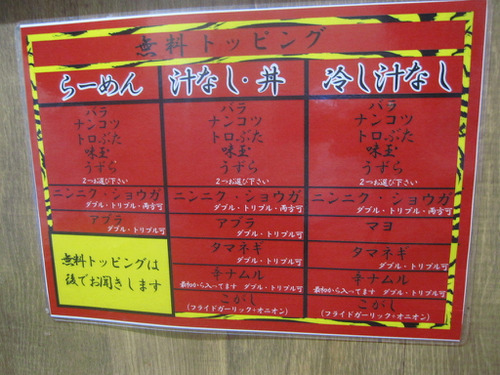 無料トッピング
らーめん
バラ
ナンコツ
トロぶた
味玉
うずら
2つお選び下さい
ニンニク・ショウガ
ダブル・トリプル・両方可
アブラ
ダブル・トリプル可
無料トッピングは
後でお聞きします
汁なし・丼
バラ
ナンコツ
トロぶた
味玉
うずら
2つお選び下さい
ニンニク・ショウガ
ダブル・トリプル・両方可
アブラ
ダブル・トリプル可
タマネギ
ダブル・トリプル可
辛ナムル
最初から入ってます ダブル・トリプル可
こがし
(フライドガーリック+オニオン)
冷し汁なし
バラ
ナンコツ
トロぶた
味玉
うずら
2つお選び下さい
ニンニク・ショウガ
ダブル・トリプル・両方可
マヨ
ダブル・トリプル可
タマネギ
ダブル・トリプル可
辛ナムル
最初から入ってます ダブル・トリプル可
こがし
(フライドガーリック+オニオン)